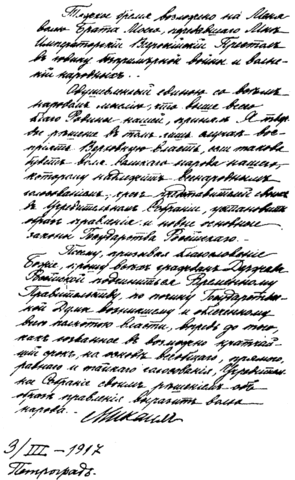 Тяжкое бремя возложено на Меня
волею Брата Моего, передавшаго Мнѣ
Императорскій Всероссійскій Престолъ
въ годину безпримѣрной войны и волне-
ній народныхъ.
Одушевленный единою со всѣмъ
народомъ мыслію, что выше всего
благо Родины нашей, принялъ Я твер-
дое рѣшеніе въ томъ лишь случаѣ вос-
принять Верховную власть, если такова
будетъ воля великаго народа нашего,
которому надлежитъ всенароднымъ
голосованіемъ, чрезъ представителей своихъ
въ Учредительномъ Собраніи, установить
образъ правленія и новые основные
законы Государства Россійскаго.
Посему, призывая благословеніе
Божіе, прошу всѣхъ гражданъ Державы
Россійской подчиниться Временному
Правительству, по почину Государствен-
ной Думы возникшему и облеченному
всею полнотою власти, впредь до того,
какъ созванное въ возможно кратчай-
шій срокъ, на основѣ всеобщаго, прямого,
равнаго и тайнаго голосованія, Учредитель-
ное Собраніе своимъ рѣшеніемъ объ
образѣ правленія выразитъ волю
народа.
Михаилъ
3/III – 1917
Петроградъ.